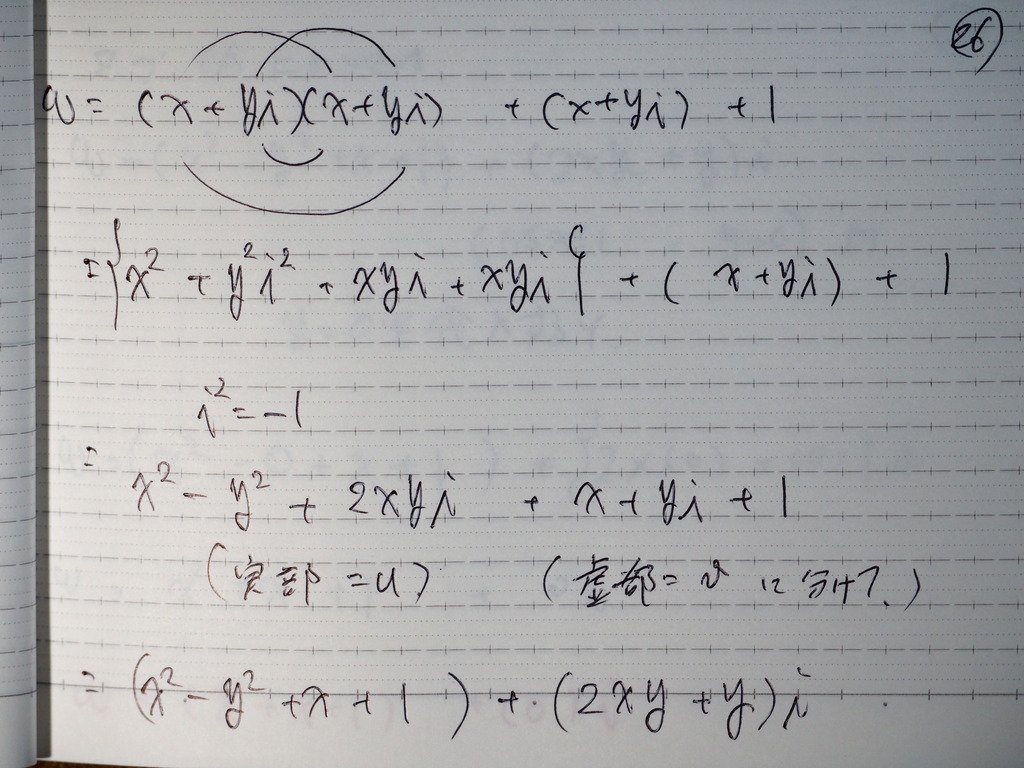 26
w = (x + yi)(x + yi) + (x + yi) + 1
= {x² + y²i² + xyi + xyi} + (x + yi) + 1
i² = -1
=
x² - y² + 2xyi + x + yi + 1
(実部 = u) (虚部 = v に分け?.)
= (x² - y² + x + 1) + (2xy + y)i